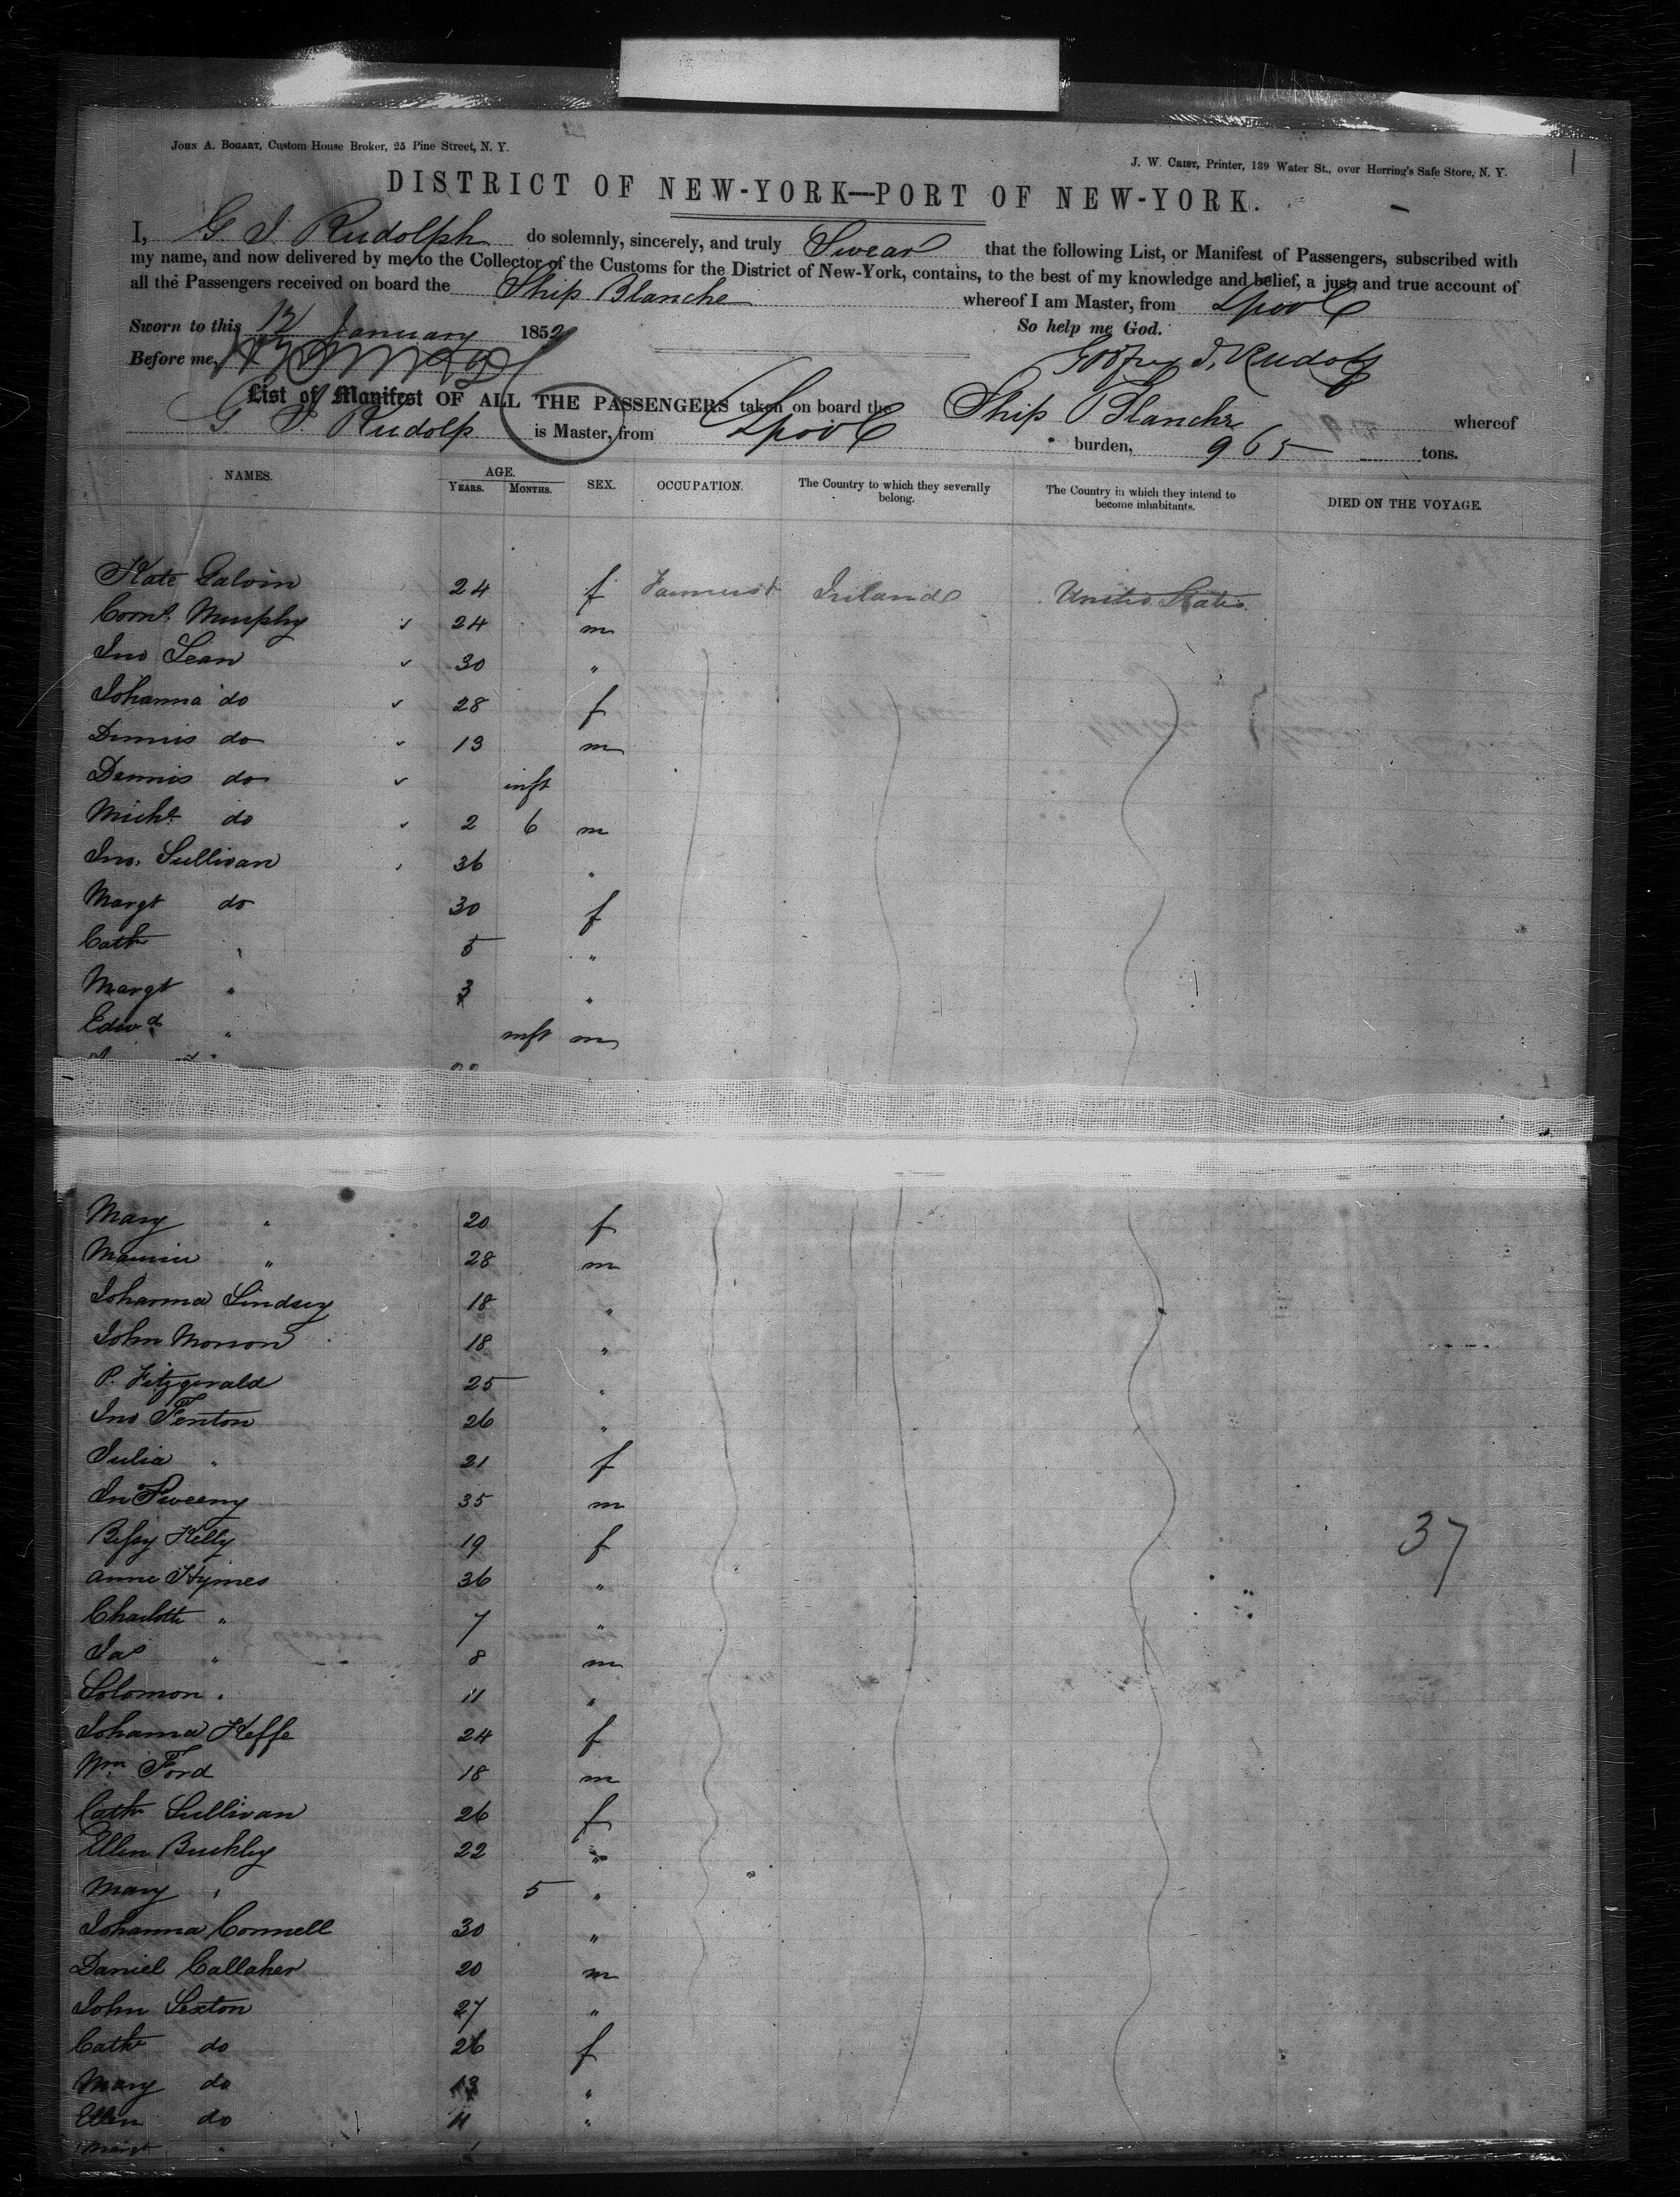 JOHN A. BOGART, Custom House Broker, 25 Pine Street, N. Y.
J. W. CRIST, Printer, 139 Water St., over Herring's Safe Store, N. Y.
DISTRICT OF NEW-YORK—PORT OF NEW-YORK.
I, G. J. Rudolph do solemnly, sincerely, and truly Swear that the following List, or Manifest of Passengers, subscribed with
my name, and now delivered by me to the Collector of the Customs for the District of New-York, contains, to the best of my knowledge and belief, a just and true account of
all the Passengers received on board the Ship Blanche whereof I am Master, from Lpool
Sworn to this 12 January 1852 So help me God.
Before me,
Godfrey J. Rudolph
List of Manifest OF ALL THE PASSENGERS taken on board the Ship Blanche whereof
G. J. Rudolp is Master, from Lpool burden, 965 tons.
NAMES. AGE. YEARS. MONTHS. SEX. OCCUPATION. The Country to which they severally belong. The Country in which they intend to become inhabitants. DIED ON THE VOYAGE.
Kate Galvin 24 f Ireland United States
Corn! Murphy 24 m
Jno Lean 30 "
Johanna do 28 f
Dennis do 13 m
Dennis do inft
Michl do 2 6 m
Jno. Sullivan 36 "
Margt do 30 f
Cath 5 "
Margt " 3 "
Edwd " inft m
Mary " 20 f
Maurice " 28 m
Johanna Lindsey 18 "
John Morson 18 "
P. Fitzgerald 25 "
Jno Fenton 26 "
Julia " 21 f
Jn Sweeny 35 m
Bessy Kelly 19 f
37
Anne Hymes 36 "
Charlotte " 7 "
Jas " 8 m
Solomon " 11 "
Johanna Keffe 24 f
Wm Ford 18 m
Cath Sullivan 26 f
Ellen Buckley 22 "
Mary " 5 "
Johanna Connell 30 "
Daniel Callaher 20 m
John Sexton 27 "
Cath do 26 f
Mary do 13 "
Ellen do 11 "
Margt "